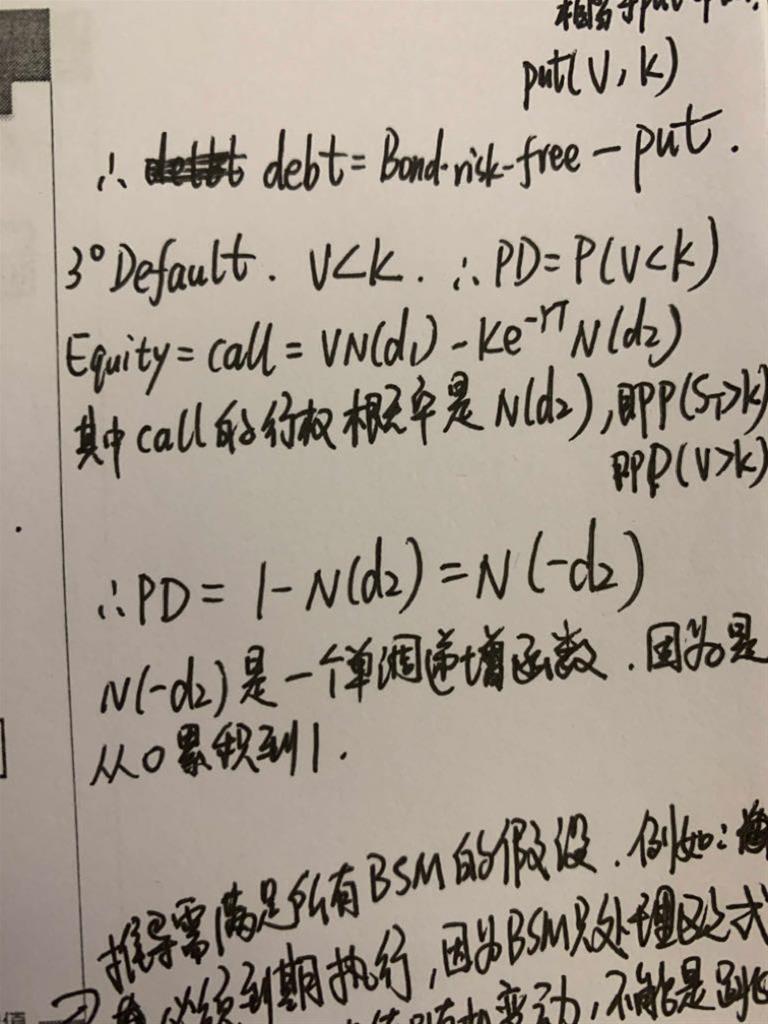 相当于put
put(V,K)
∴ debt=Bond-risk-free-put.
3° Default. V<K. ∴PD=P(V<K)
Equity=call=VN(d₁)-Ke^-rT N(d₂)
其中call的行权概率是N(d₂),即P(S_T>K)
即P(V>K)
∴PD=1-N(d₂)=N(-d₂)
N(-d₂)是一个单调递增函数.因为是
从0累积到1.
推导需满足所有BSM的假设.例如:
必须到期执行,因为BSM只处理欧式
变动,不能是跳
值